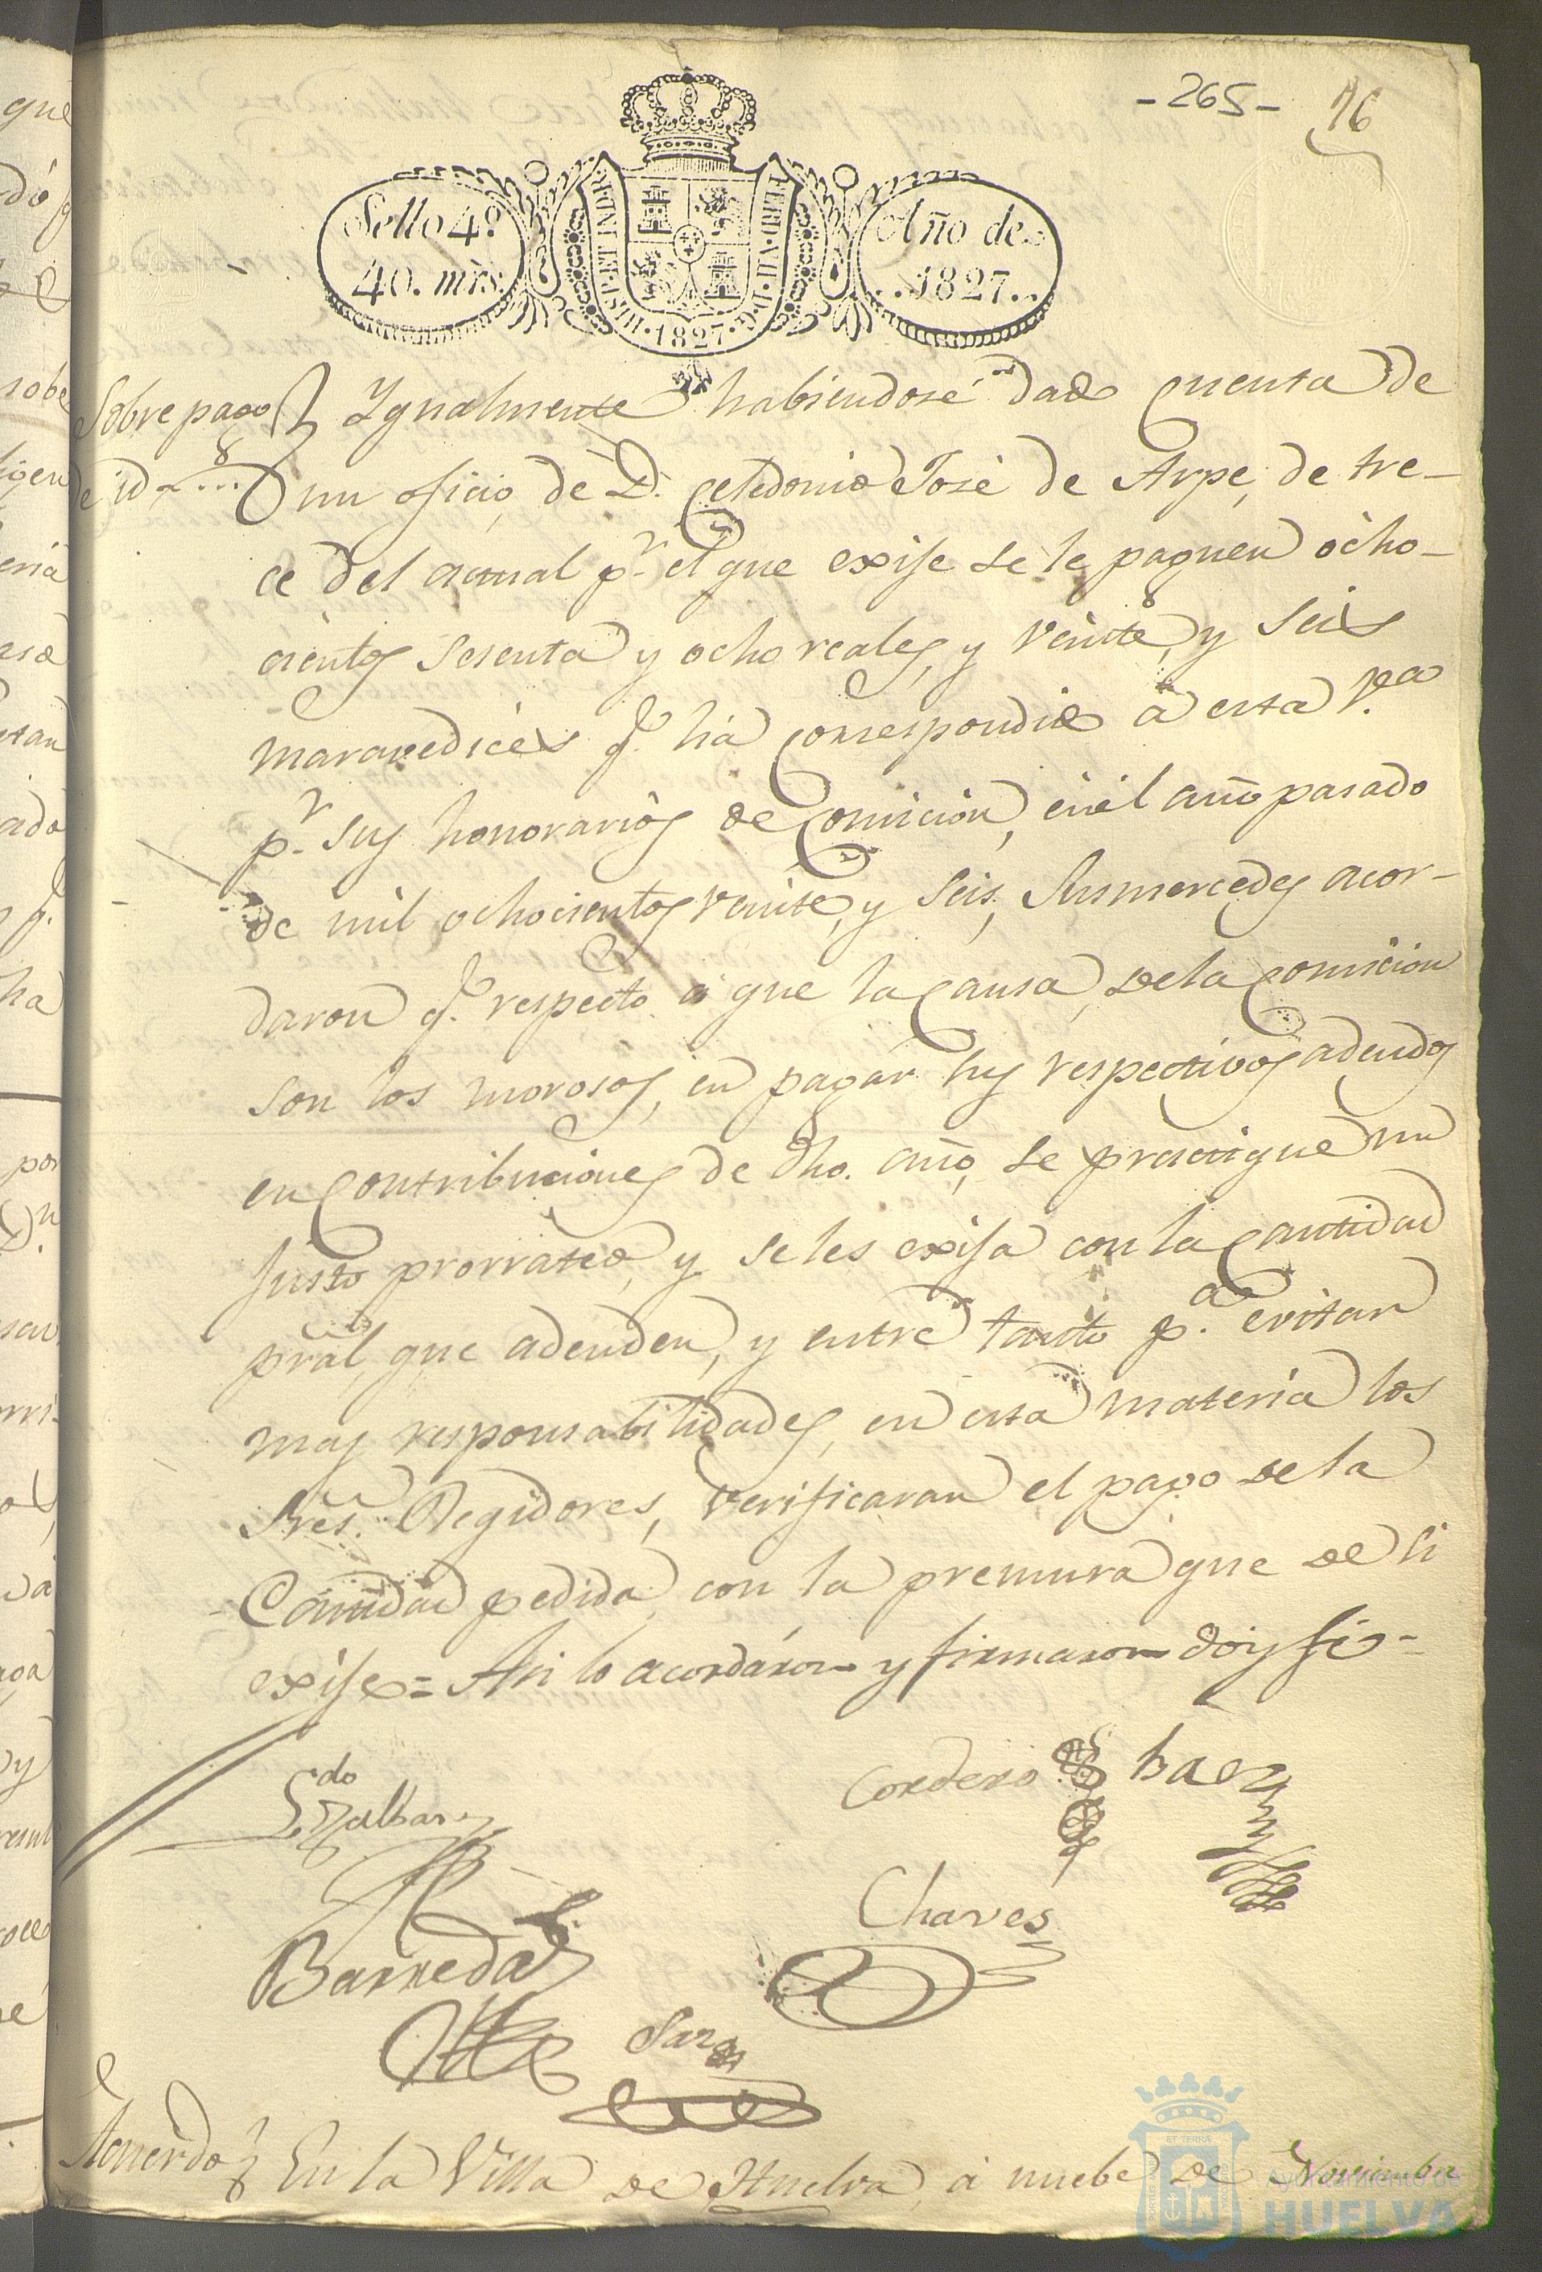 -265-
76
Sello 4º.
40. mrs.
HISP. ET IND. R.
FERD. VII. D. G.
1827
Año de
..1827..
Sobre pago
de id....
Ygualmente habiendose dado Cuenta de
un oficio, de D. Celedonio José de Arpe, de tre-
ce del actual pr. el que exije se le paguen ocho-
cientos sesenta y ocho reales, y veinte, y seis
maravedices q. há Correspondido á esta Va.
pr. sus honorarios de Comicion, en el año pasado
de mil ochocientos veinte, y seis, Susmercedes acor-
daron q. respecto á que la Causa, dela Comicion
son los morosos, en pagar sus respectivos adeudos
en Contribuciones de dho. año, se practique un
justo prorrateo, y se les exija con la Cantidad
pral, que adeuden, y entre tanto pa. evitar
mas responsabilidades, en esta materia los
Sres. Regidores, verificaran el pago dela
Cantidad pedida, con la premura que de si
exije = Asi lo acordáron y firmaron doy fe-
Ldo
Cordero
Baez
Barreda
Chaves
Acuerdo
En la Villa de Huelva, á nuebe de Noviembre
Ayuntamiento de
HUELVA